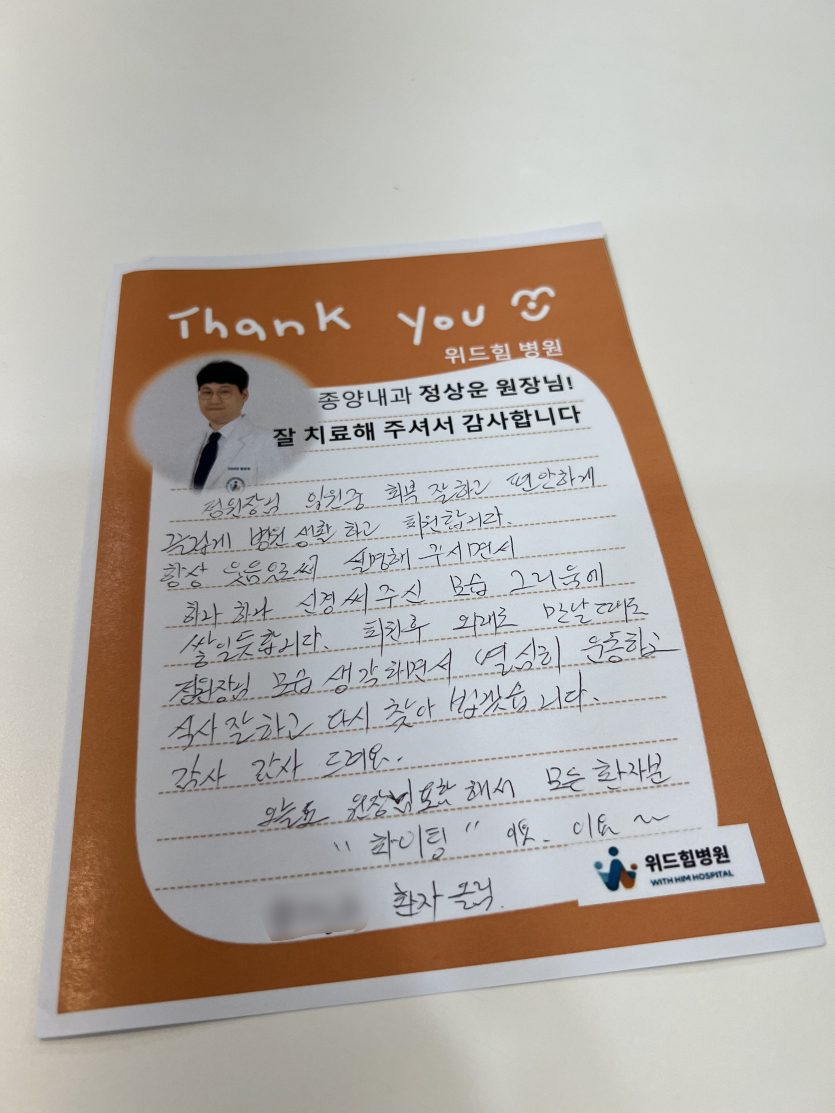 Thank you
위드힘 병원
종양내과 정상운 원장님!
잘 치료해 주셔서 감사합니다
정원장님 입원중 회복 잘하고 편안하게
즐겁게 병원 생활 하고 퇴원합니다.
항상 웃음으로써 설명해 주시면서
하나 하나 신경써 주신 모습 그리움에
쌓일듯합니다. 퇴원후 외래로 만날때로
정원장님 모습 생각하면서 열심히 운동하고
식사 잘하고 다시 찾아 뵙겠습니다.
감사 감사 드려요.
오늘도 원장님포함 해서 모든 환자분
"화이팅" 이요~
환자 올림.
위드힘병원
WITH HIM HOSPITAL